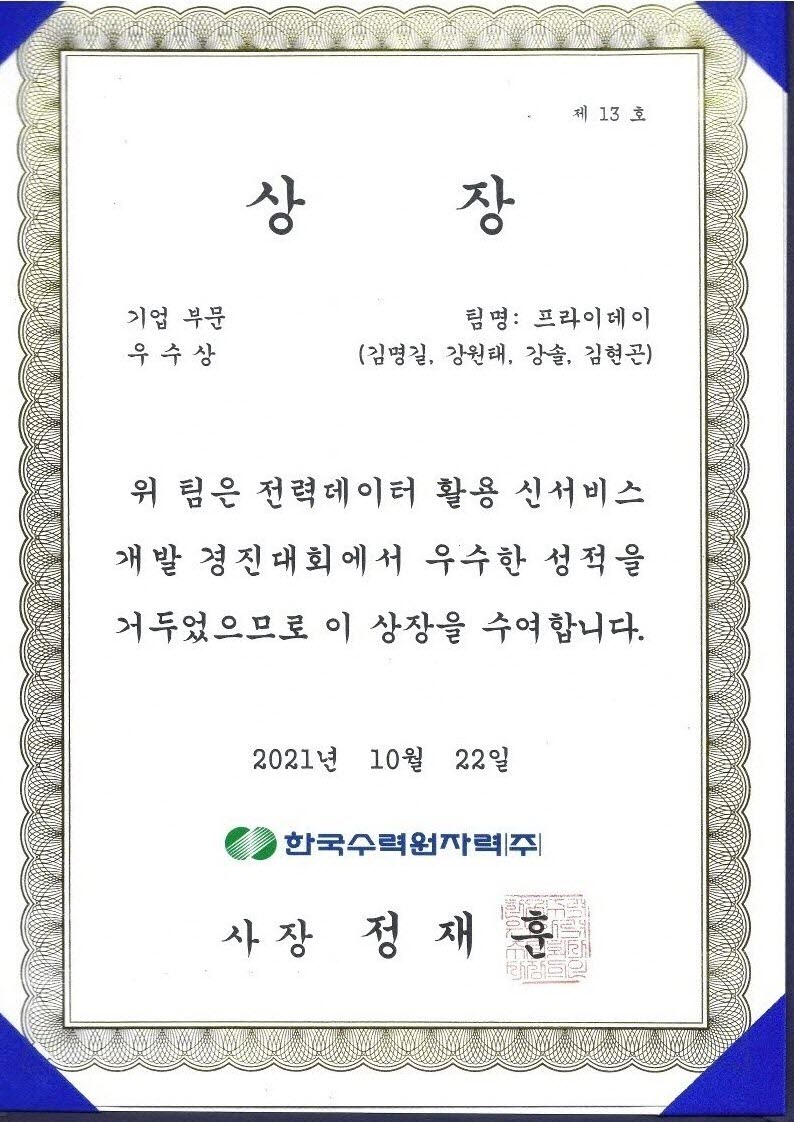 제 13 호
상 장
기업 부문 팀명: 프라이데이
우 수 상 (김명길, 강원태, 강솔, 김현곤)
위 팀은 전력데이터 활용 신서비스
개발 경진대회에서 우수한 성적을
거두었으므로 이 상장을 수여합니다.
2021년 10월 22일
한국수력원자력(주)
사 장 정 재 훈